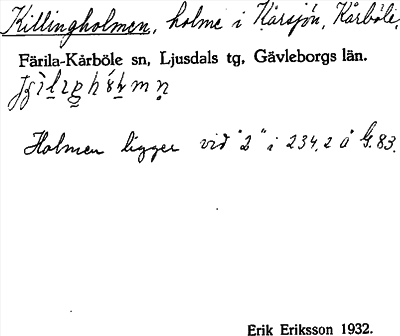 Killingholmen, holme i Kårsjön, Kårböle,
Färila-Kårböle sn, Ljusdals tg, Gävleborgs län.
Holmen ligger vid "2" i 234,2 å G.83.
Erik Eriksson 1932.